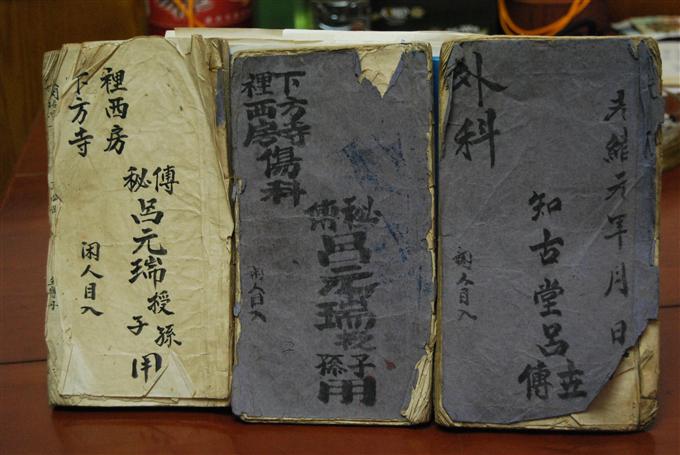 下方寺
裡西房
秘傳
呂元瑞授子孫用
闲人目入
下方寺
裡西房傷科
秘傳
呂元瑞授子孫用
闲人目入
光緒元年月日
知古堂呂世傳
外科
闲人目入